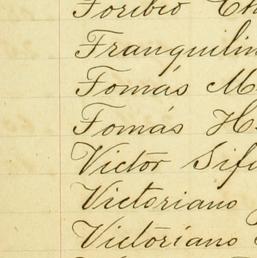 Toribio
Tranquilin
Tomás M
Tomás H
Victor Sif
Victoriano
Victoriano